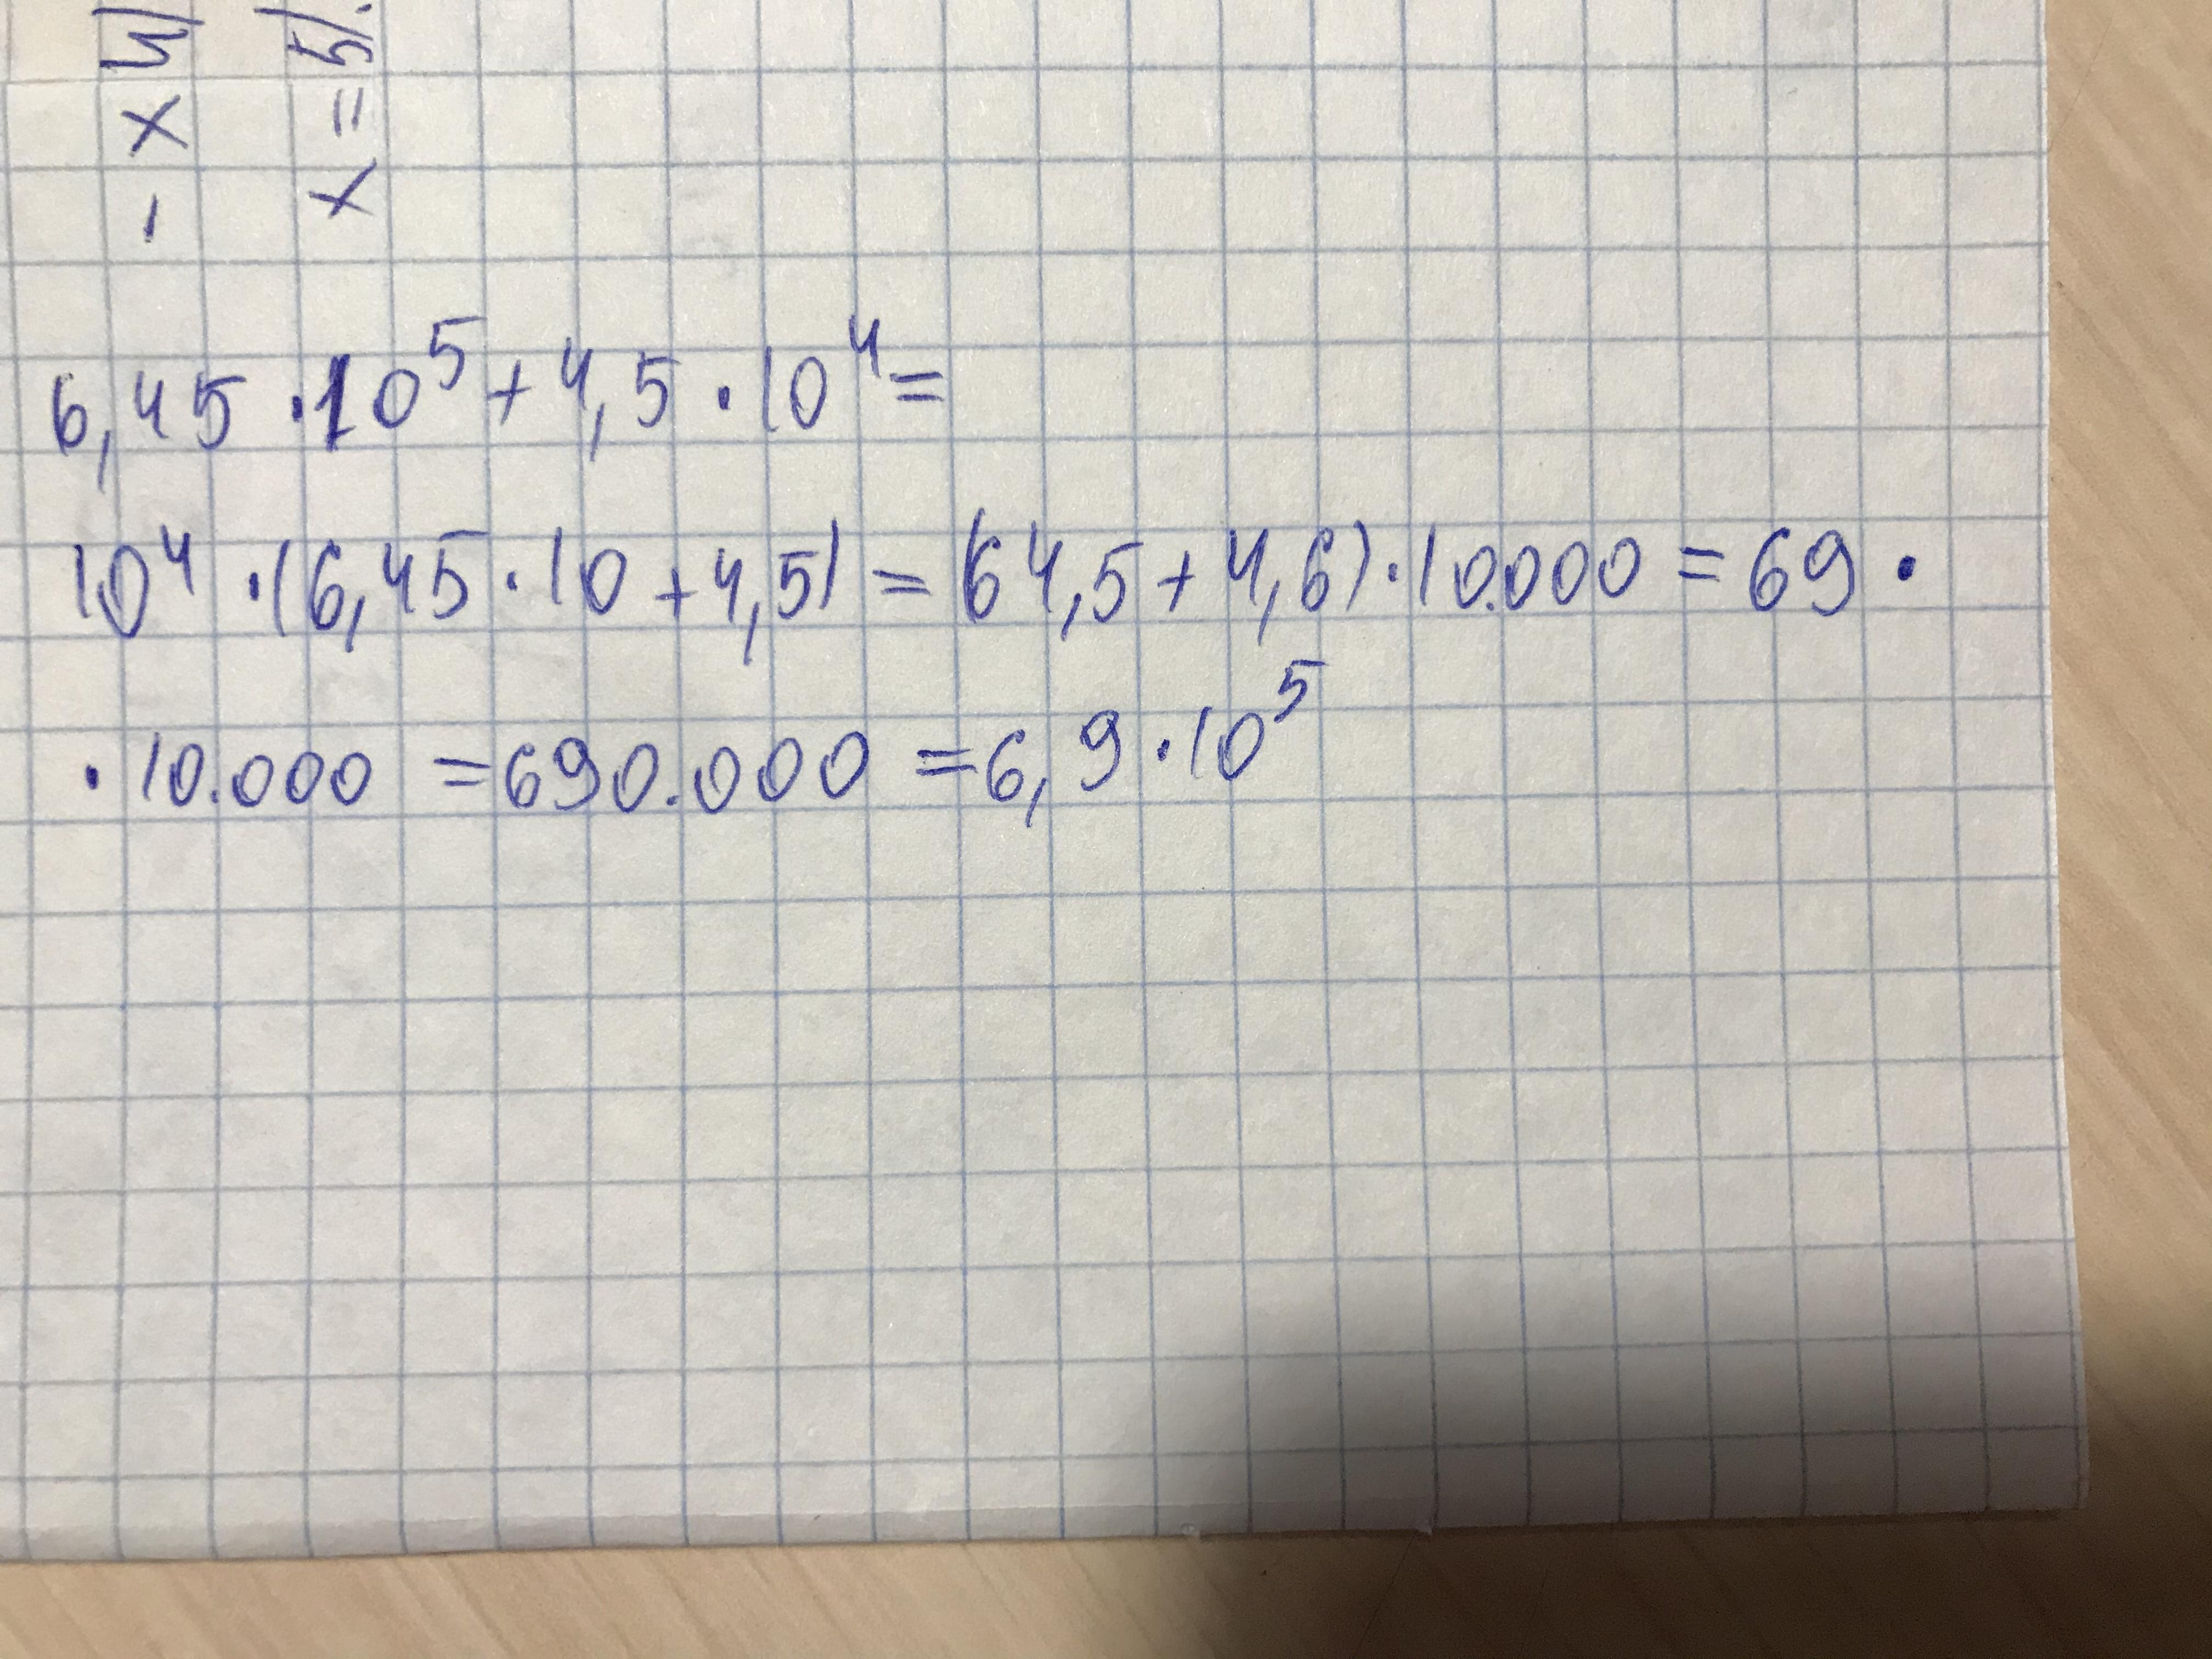 - x 4
x = 5
6,45 · 10⁵ + 4,5 · 10⁴ =
10⁴ · (6,45 · 10 + 4,5) = (64,5 + 4,6) · 10.000 = 69 ·
· 10.000 = 690.000 = 6,9 · 10⁵